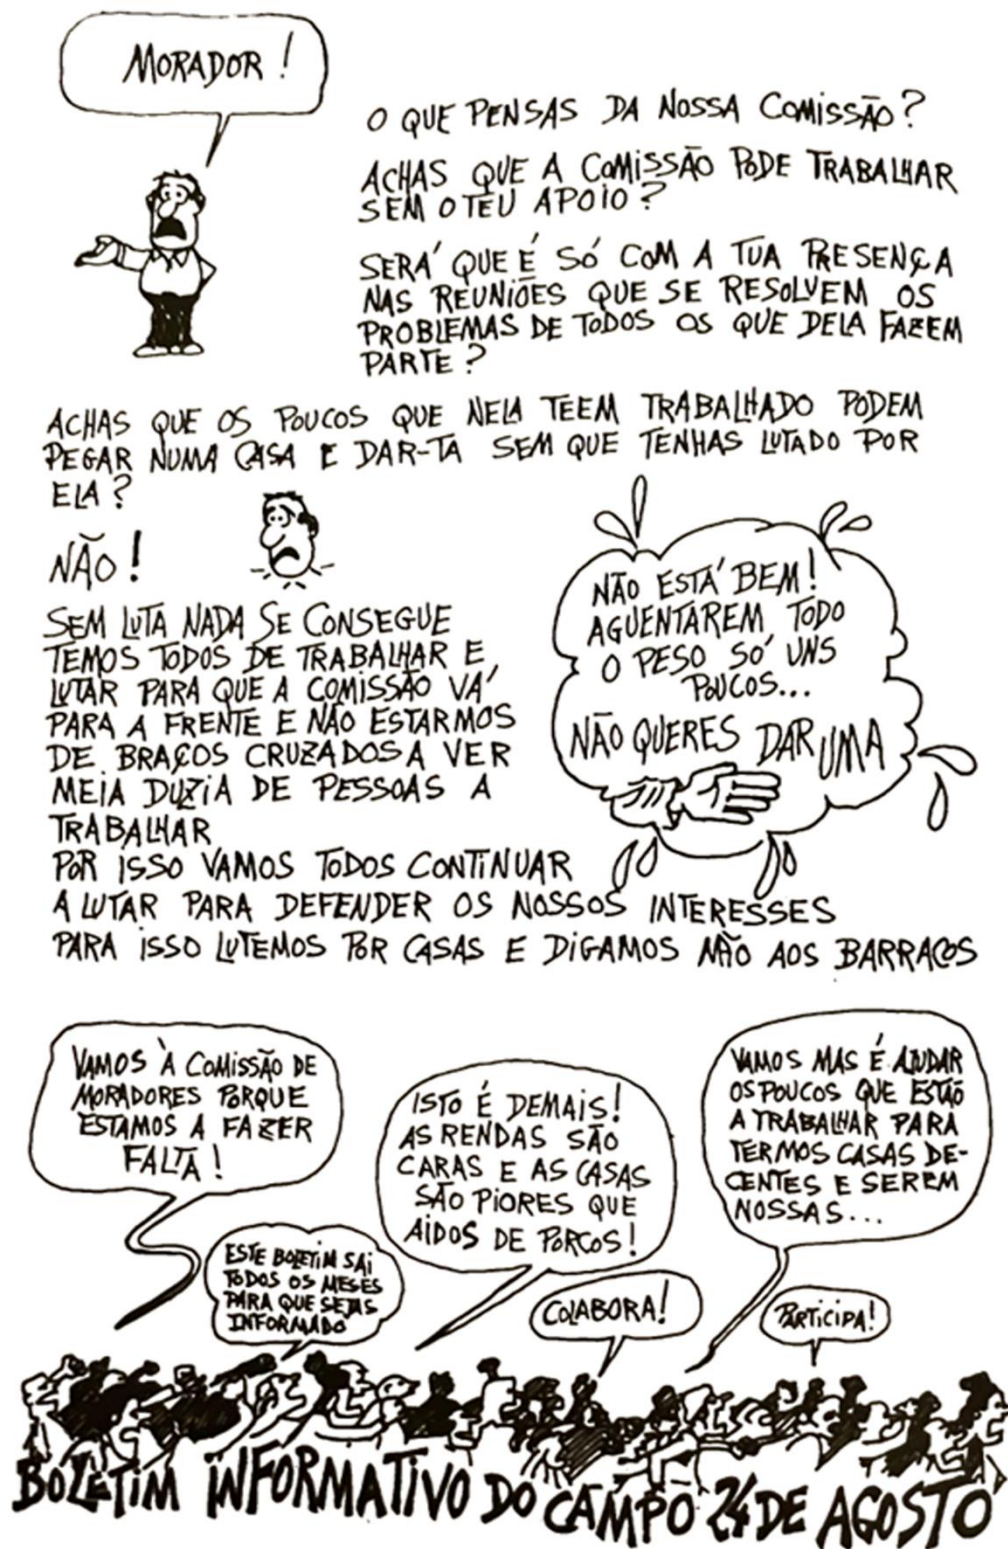 MORADOR!
O QUE PENSAS DA NOSSA COMISSÃO?
ACHAS QUE A COMISSÃO PODE TRABALHAR
SEM O TEU APOIO?
SERÁ QUE É SÓ COM A TUA PRESENÇA
NAS REUNIÕES QUE SE RESOLVEM OS
PROBLEMAS DE TODOS OS QUE DELA FAZEM
PARTE?
ACHAS QUE OS POUCOS QUE NELA TEEM TRABALHADO PODEM
PEGAR NUMA CASA E DAR-TA SEM QUE TENHAS LUTADO POR
ELA?
NÃO!
SEM LUTA NADA SE CONSEGUE
TEMOS TODOS DE TRABALHAR E
LUTAR PARA QUE A COMISSÃO VÁ
PARA A FRENTE E NÃO ESTARMOS
DE BRAÇOS CRUZADOS A VER
MEIA DUZIA DE PESSOAS A
TRABALHAR
POR ISSO VAMOS TODOS CONTINUAR
A LUTAR PARA DEFENDER OS NOSSOS INTERESSES
PARA ISSO LUTEMOS POR CASAS E DIGAMOS NÃO AOS BARRACOS
NÃO ESTÁ BEM!
AGUENTAREM TODO
O PESO SÓ UNS
POUCOS...
NÃO QUERES DAR UMA
VAMOS À COMISSÃO DE
MORADORES PORQUE
ESTAMOS A FAZER
FALTA!
ESTE BOLETIM SAI
TODOS OS MESES
PARA QUE SEJAS
INFORMADO
ISTO É DEMAIS!
AS RENDAS SÃO
CARAS E AS CASAS
SÃO PIORES QUE
AIDOS DE PORCOS!
COLABORA!
VAMOS MAS É AJUDAR
OS POUCOS QUE ESTÃO
A TRABALHAR PARA
TERMOS CASAS DE-
CENTES E SEREM
NOSSAS...
PARTICIPA!
BOLETIM INFORMATIVO DO CAMPO 24 DE AGOSTO